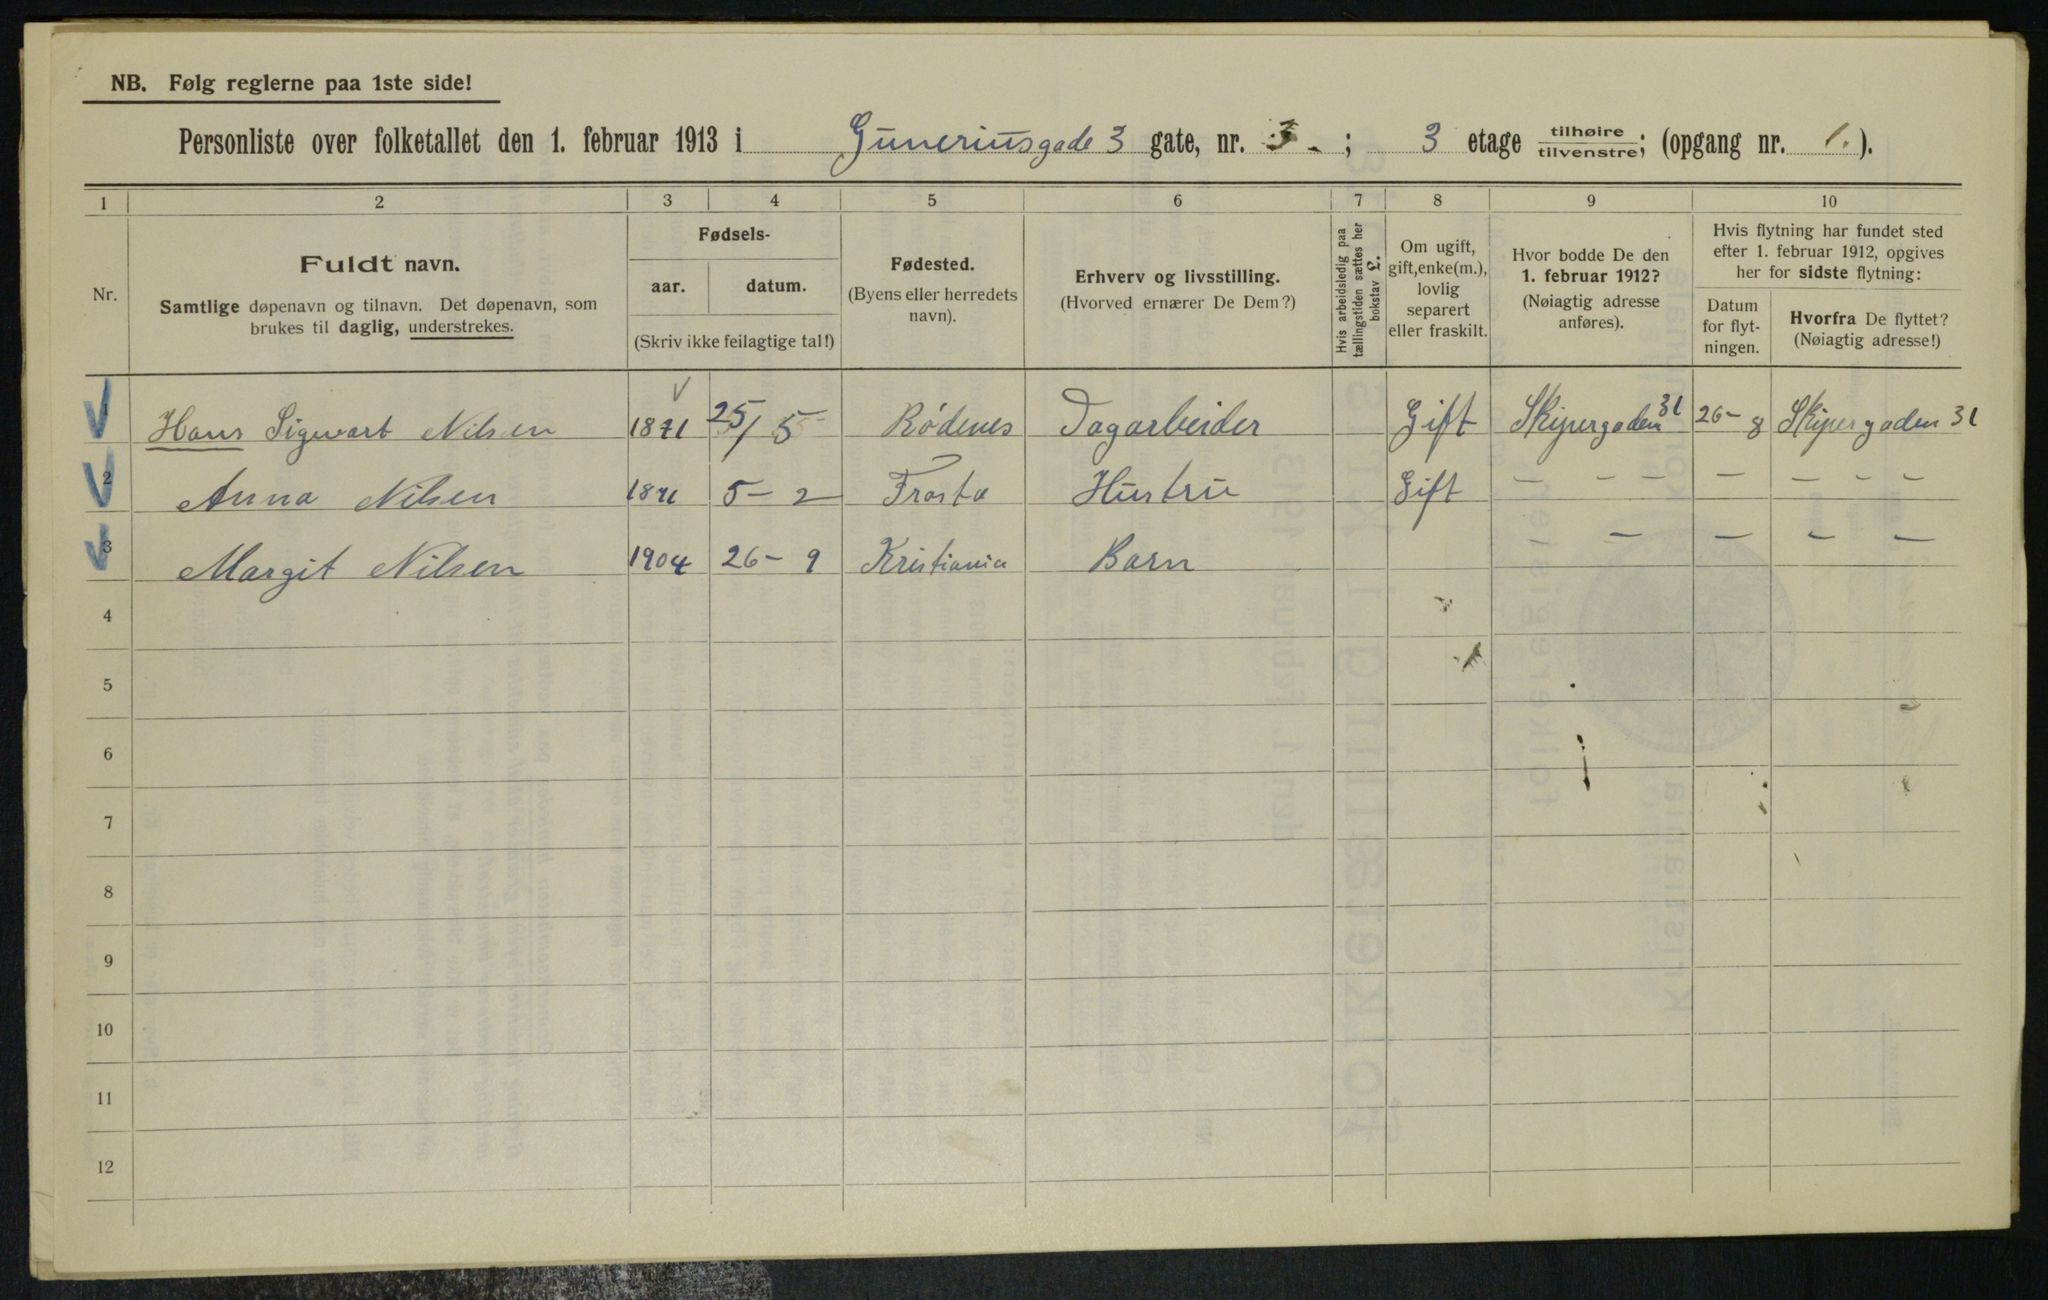 NB. Følg reglerne paa 1ste side!
Personliste over folketallet den 1. februar 1913 i Guneriusgade 3 gate, nr. 3. ; 3 etage tilhøire tilvenstre; (opgang nr. 1.).
1 2 3 4 5 6 7 8 9 10
Nr.
Fuldt navn.
Samtlige døpenavn og tilnavn. Det døpenavn, som
brukes til daglig, understrekes.
Fødsels-
aar. datum.
(Skriv ikke feilagtige tal!)
Fødested.
(Byens eller herredets
navn).
Erhverv og livsstilling.
(Hvorved ernærer De Dem?)
Hvis arbeidsledig paa
tællingstiden sættes her
bokstav L.
Om ugift,
gift, enke(m.),
lovlig
separert
eller fraskilt.
Hvor bodde De den
1. februar 1912?
(Nøiagtig adresse
anføres).
Hvis flytning har fundet sted
efter 1. februar 1912, opgives
her for sidste flytning:
Datum
for flyt-
ningen.
Hvorfra De flyttet?
(Nøiagtig adresse!)
1 Hans Sigwart Nilsen 1871 25/5 Rødenes Dagarbeider Gift Skipergaden 31 26-8 Skipergaden 31
2 Anna Nilsen 1871 5-2 Frosta Hustru Gift – – – – – – –
3 Margit Nilsen 1904 26-9 Kristiania Barn – – – – –
4
5
6
7
8
9
10
11
12